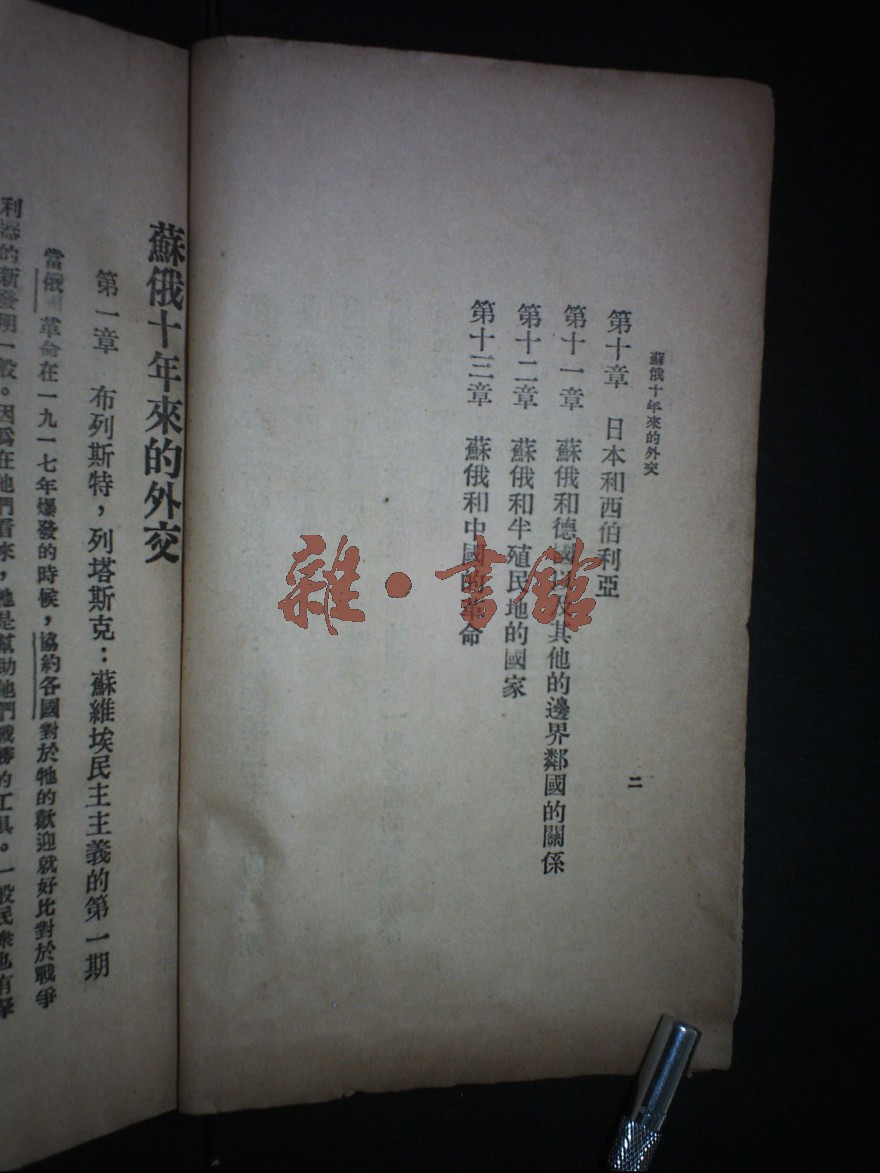 蘇俄十年來的外交
第十章　日本和西伯利亞
第十一章　蘇俄和德國以及其他的邊界鄰國的關係
第十二章　蘇俄和半殖民地的國家
第十三章　蘇俄和中國的革命
二
雜·書館
蘇俄十年來的外交
第一章　布列斯特，列塔斯克：蘇維埃民主主義的第一期
當俄國革命在一九一七年爆發的時候，協約各國對於牠的歡迎就好比對於戰爭
利器的新發明一般。因爲在他們看來，牠是幫助他們戰勝的工具。一般民衆也有